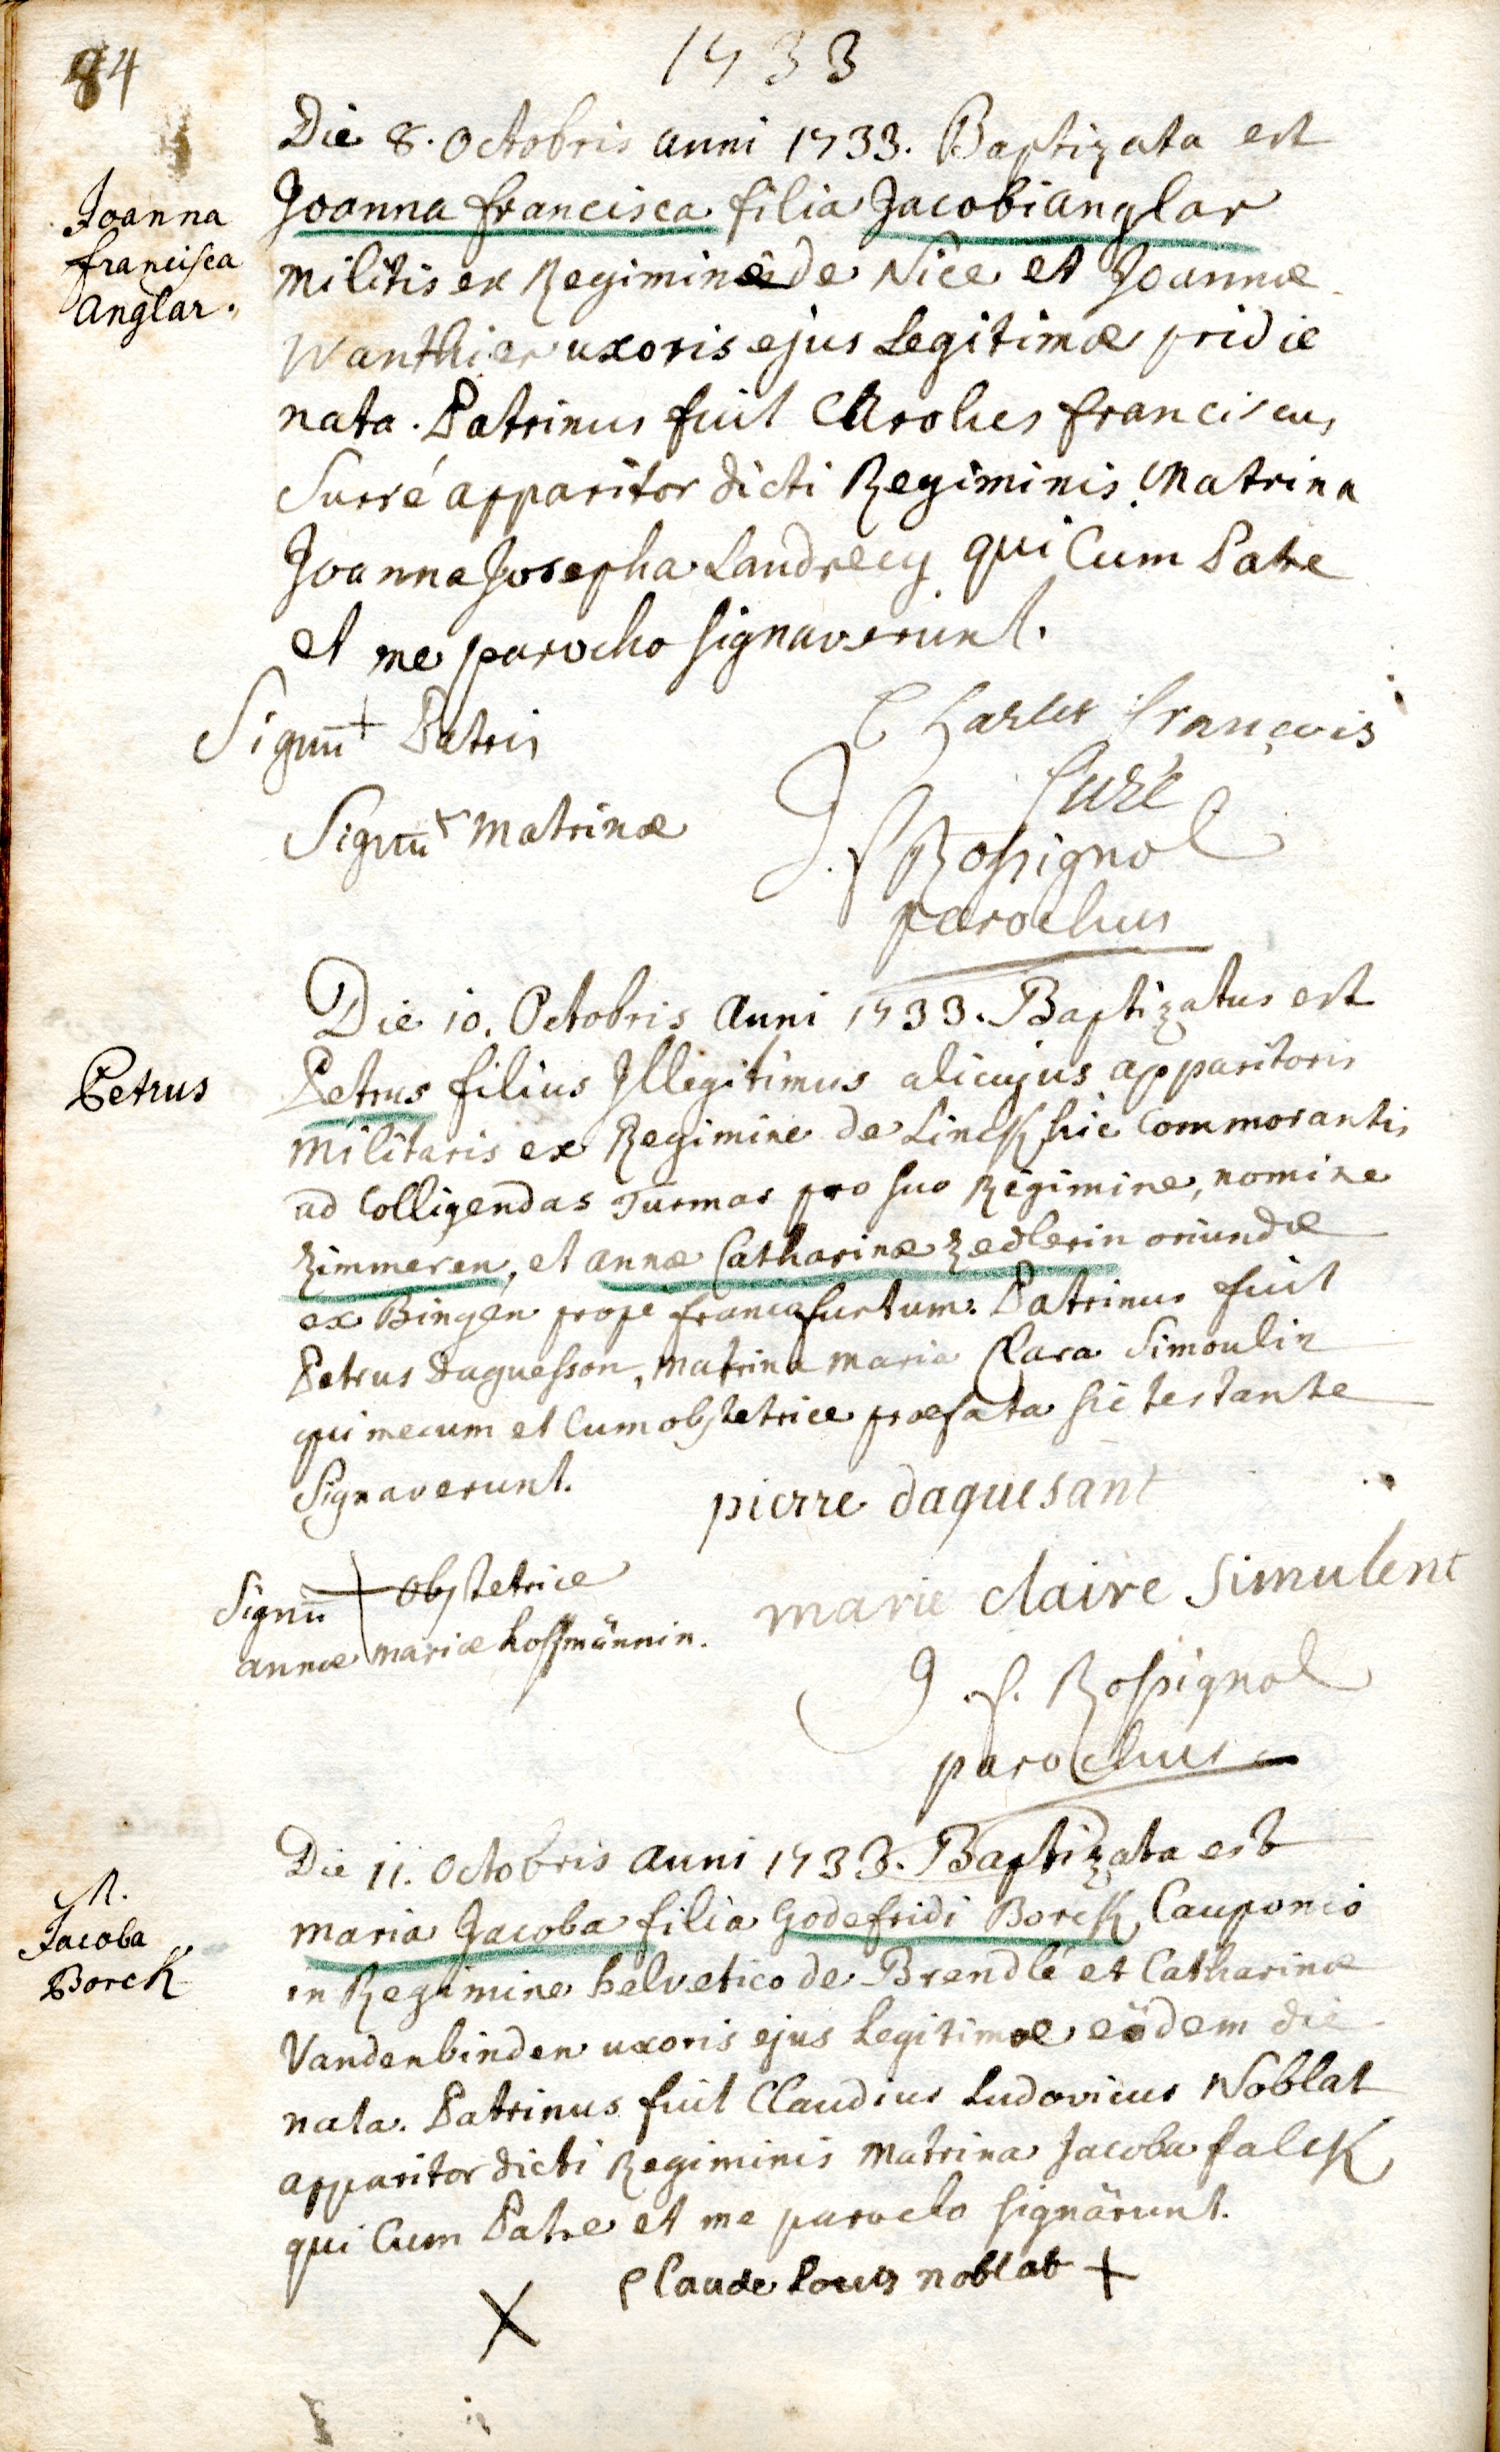 84
1733
Die 8. Octobris anni 1733. Baptizata est
Joanna francisca filia Jacobi anglar
militis ex Regimine de Nice et Joannæ
Wanthier uxoris ejus Legitimæ pridie
nata. Patrinus fuit Carolus franciscus
Surré apparitor dicti Regiminis Matrina
Joanna Josepha Landrecy qui Cum Patre
et me parocho signaverunt.
Joanna
francisca
anglar.
Signũ + Patris
Charles françois
Suré
Signũ + Matrinæ
J. f Rossignol
parochus
Die 10. Octobris anni 1733. Baptizatus est
Petrus filius Illegitimus alicujus apparitoris
Militaris ex Regimine de Linck hic Commorantis
ad Colligendas Turmas pro suo Regimine, nomine
Zimmeren, et annæ Catharinæ Zedlerin oriundæ
ex Bingen prope francofurtum. Patrinus fuit
Petrus Daguesson, matrina maria Clara Simoulin
qui mecum et Cum obstetrice præfata sic testante
Signaverunt.
Petrus
pierre daquesant
Signũ + Obstetrice
annæ mariæ hoffmännin.
marie claire Simulent
J. f. Rossignol
parochus
Die 11. Octobris anni 1733. Baptizata est
maria Jacoba filia Godefridi Borck Cauponis
in Regimine helvetico de Brendlé et Catharinæ
Vandenbinden uxoris ejus Legitimæ eodem die
nata. Patrinus fuit Claudius Ludovicus Noblat
apparitor dicti Regiminis Matrina Jacoba falck
qui Cum Patre et me parocho signârunt.
M.
Jacoba
Borck
Claude Louis noblat +
X